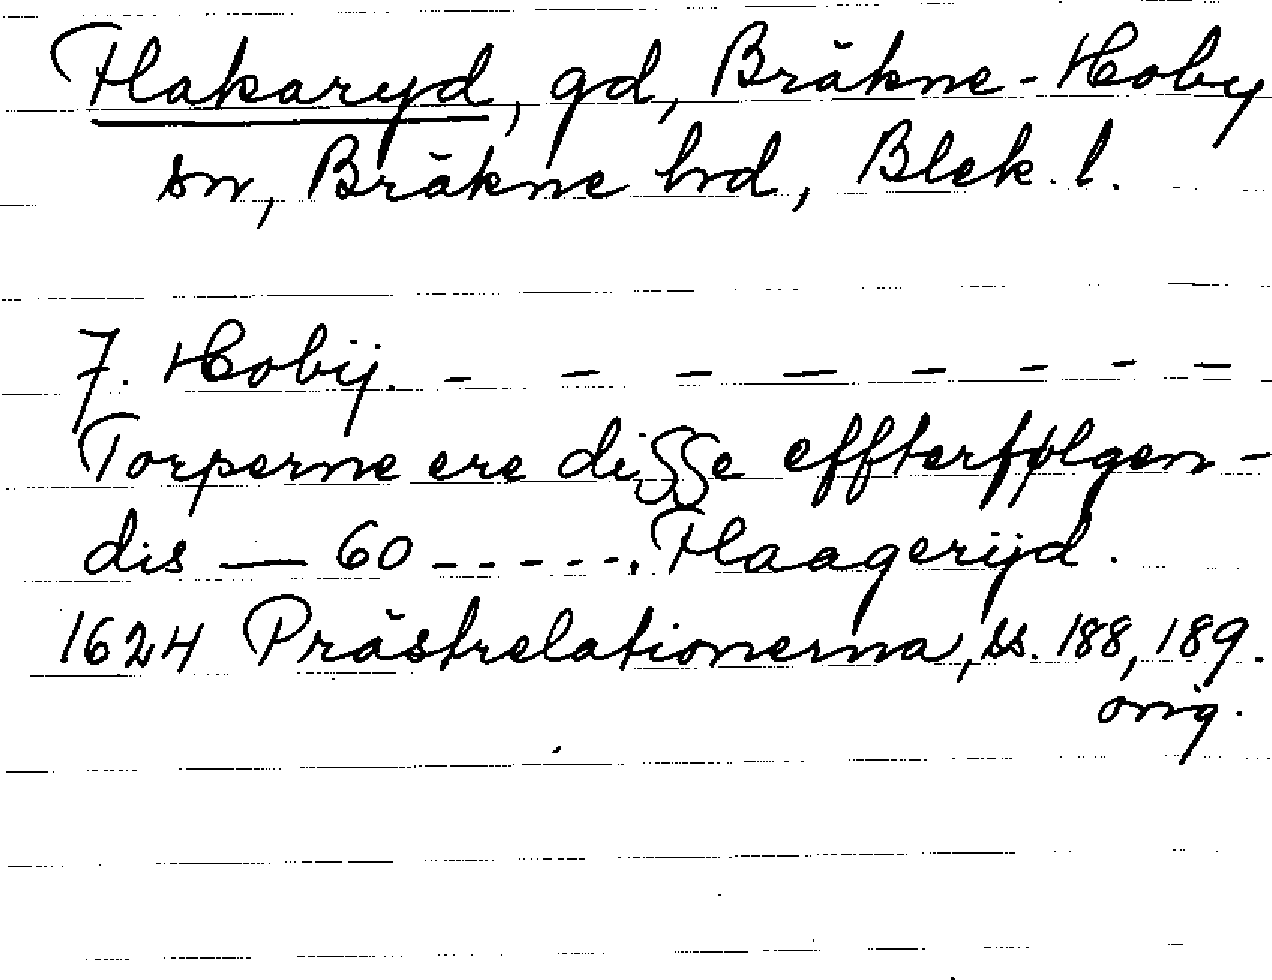 Flakaryd, gd, Bräkne-Hoby
sn, Bräkne hrd, Blek. l.
7. Hobÿ. - - - - - - - -
Torperne ere disse effterfølgen-
dis — 60 - - - - -. Flaagerijd.
1624 Prästrelationerna, ss. 188, 189.
orig.